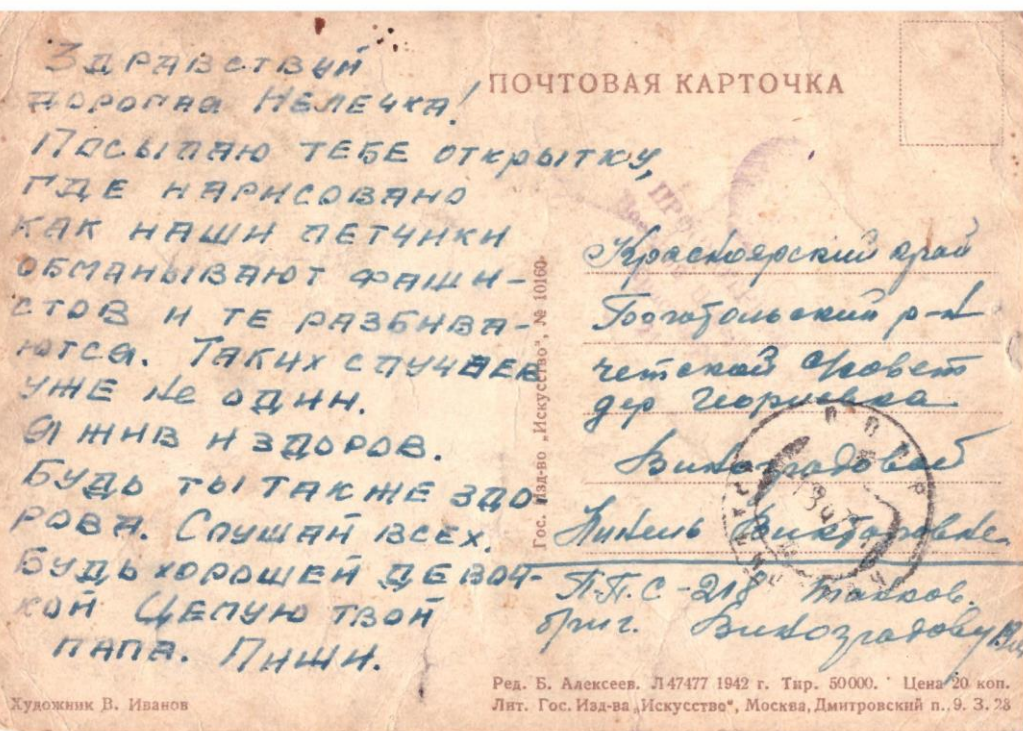 Здравствуй
дорогая Нелечка!
Посылаю тебе открытку,
где нарисовано
как наши летчики
обманывают фаши-
стов и те разбива-
ются. Таких случаев
уже не один.
Я жив и здоров.
Будь ты также здо-
рова. Слушай всех.
Будь хорошей девоч-
кой Целую твой
папа. Пиши.
Художник В. Иванов
Гос. Изд-во „Искусство", № 10160
ПОЧТОВАЯ КАРТОЧКА
Красноярский край
Боготольский р-н
четской совет
дер Георгиевка
Виноградовой
Нинель Викторовне
П.П.С-218 танков.
бриг. Виноградову
Ред. Б. Алексеев. Л47477 1942 г. Тир. 50000. Цена 20 коп.
Лит. Гос. Изд-ва „Искусство", Москва, Дмитровский п., 9. З. 28